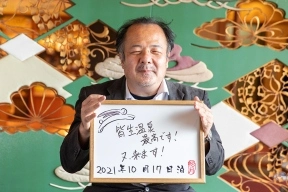 皆生温泉
最高です!
又来ます!
2021年10月17日 泊